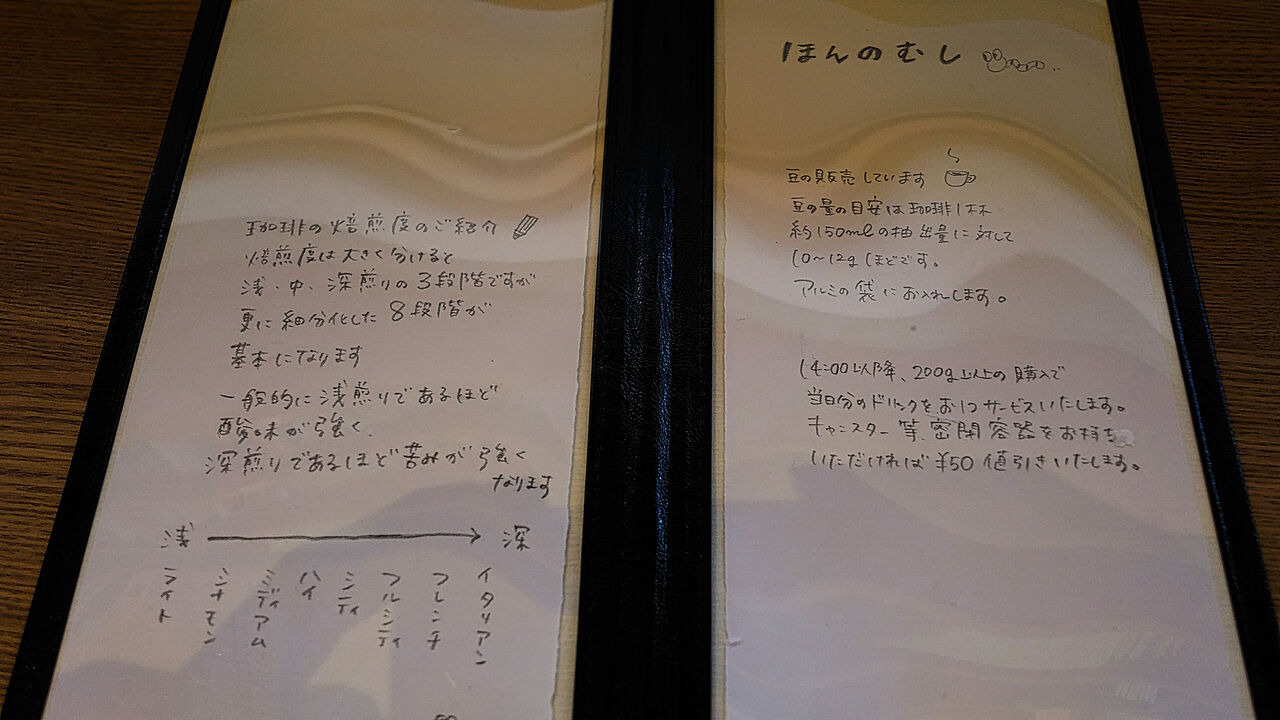 珈琲の焙煎度のご紹介
焙煎度は大きく分けると
浅・中・深煎りの3段階ですが
更に細分化した8段階が
基本になります
一般的に浅煎りであるほど
酸味が強く、
深煎りであるほど苦みが強く
なります
浅 → 深
ライト
シナモン
ミディアム
ハイ
シティ
フルシティ
フレンチ
イタリアン
ほんのむし
豆の販売しています
豆の量の目安は珈琲1杯
約150mlの抽出量に対して
10〜12gほどです。
アルミの袋にお入れします。
14:00以降、200g以上の購入で
当日分のドリンクをお1つサービスいたします。
キャニスター等、密閉容器をお持ち
いただければ¥50値引きいたします。